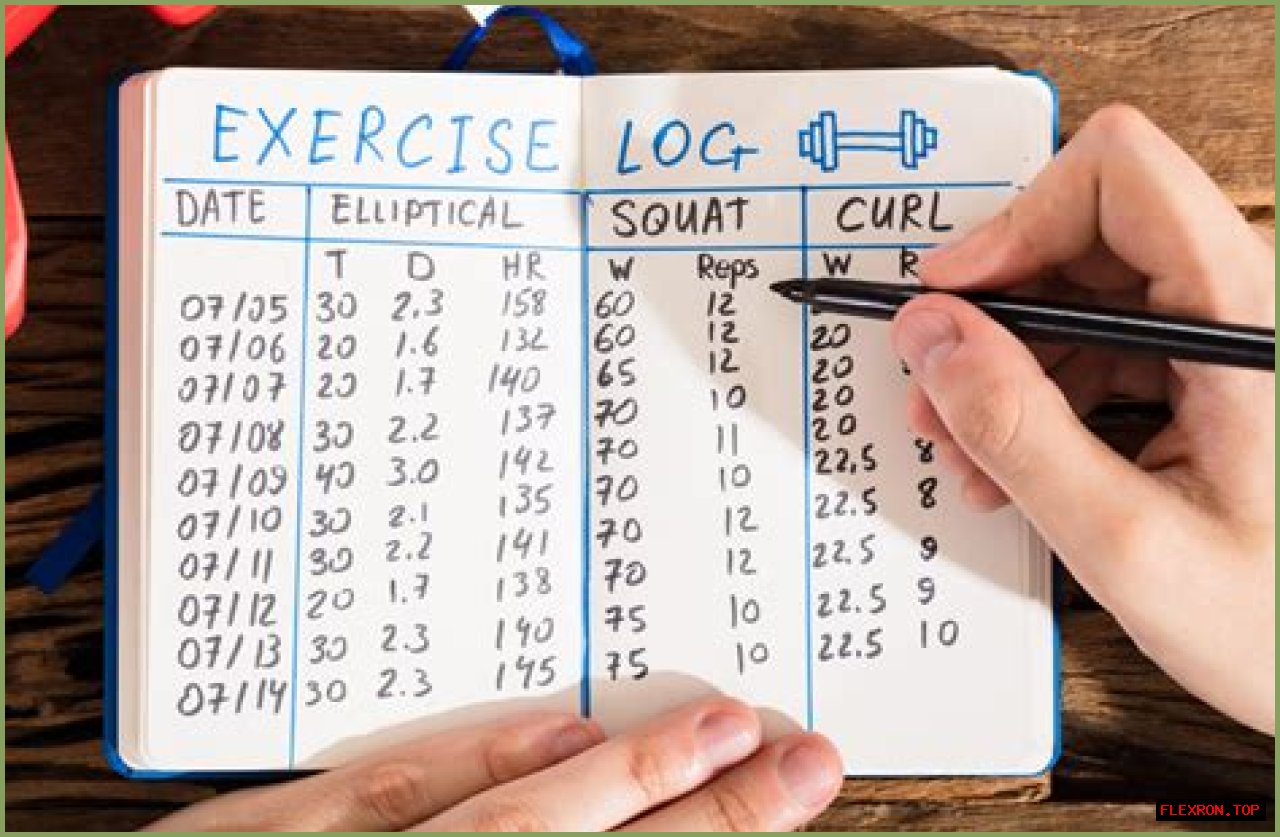 EXERCISE LOG
DATE ELLIPTICAL SQUAT CURL
T D HR W Reps W R
07/05 30 2.3 158 60 12
07/06 20 1.6 132 60 12 20
07/07 20 1.7 140 65 12 20
07/08 30 2.2 137 70 10 20
07/09 40 3.0 142 70 11 20
07/10 30 2.1 135 70 10 22,5 8
07/11 30 2.2 141 70 12 22.5 8
07/12 20 1.7 138 70 12 22.5 9
07/13 30 2.3 140 75 10 22.5 9
07/14 30 2.3 145 75 10 22.5 10
FLEXRON.TOP